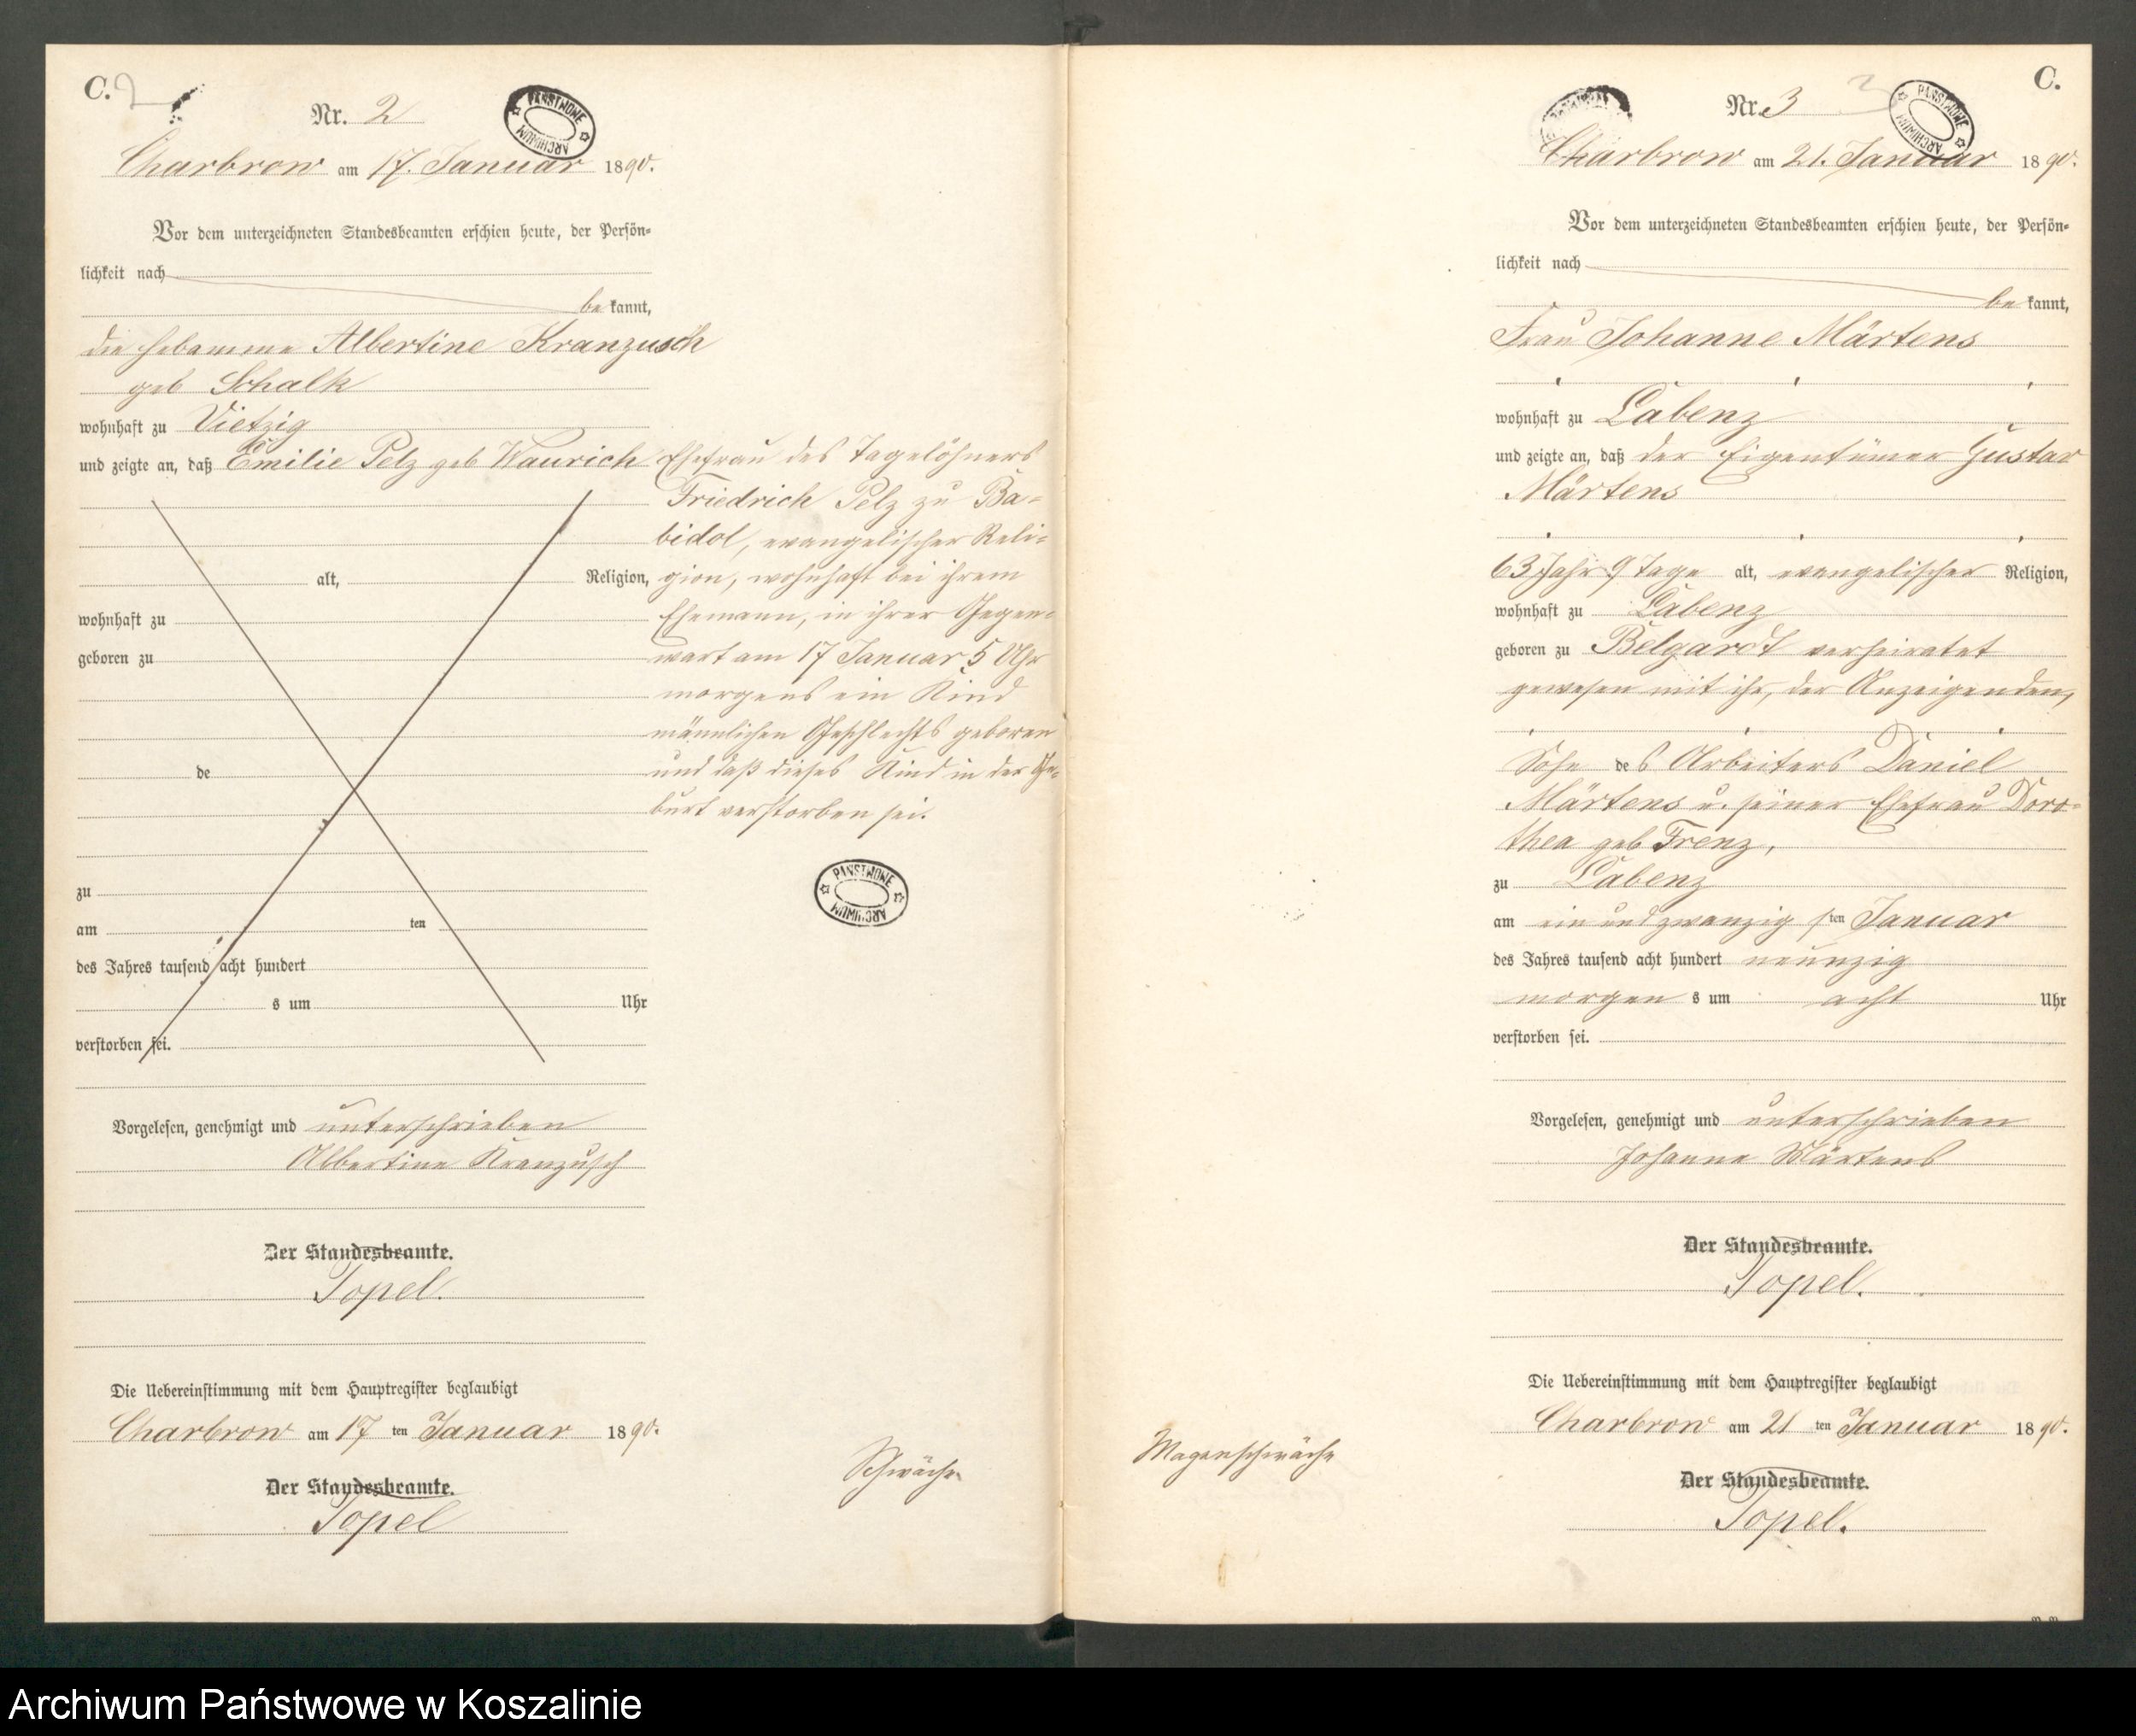 C. 2
Nr. 2
PAŃSTWOWE ARCHIWUM
Charbrow am 17. Januar 1890.
Vor dem unterzeichneten Standesbeamten erschien heute, der Persön-
lichkeit nach
be kannt,
die Hebamme Albertine Kranzusch
geb Schalk
wohnhaft zu Vietzig
und zeigte an, daß Emilie Pelz geb Waurich
alt, Religion,
wohnhaft zu
geboren zu
de
zu
am ten
des Jahres tausend acht hundert
s um Uhr
verstorben sei.
Ehefrau des Tagelöhners
Friedrich Pelz zu Ba-
bidol, evangelischer Reli-
gion, wohnhaft bei ihrem
Ehemann, in ihrer Gegen-
wart am 17 Januar 5 Uhr
morgens ein Kind
männlichen Geschlechts geboren
und daß dieses Kind in der Ge-
burt verstorben sei.
PAŃSTWOWE ARCHIWUM
Vorgelesen, genehmigt und unterschrieben
Albertine Kranzusch
Der Standesbeamte.
Topel.
Die Uebereinstimmung mit dem Hauptregister beglaubigt
Charbrow am 17 ten Januar 1890.
Der Standesbeamte.
Topel
Schwäche
C.
Nr. 3 3
PAŃSTWOWE ARCHIWUM
Charbrow am 21. Januar 1890.
Vor dem unterzeichneten Standesbeamten erschien heute, der Persön-
lichkeit nach
be kannt,
Frau Johanne Märtens
wohnhaft zu Labenz
und zeigte an, daß der Eigentümer Gustav
Märtens
63 Jahr 9 Tage alt, evangelischer Religion,
wohnhaft zu Labenz
geboren zu Belgard verheiratet
gewesen mit ihr, der Anzeigenden,
Sohn des Arbeiters Daniel
Märtens u. seiner Ehefrau Doro-
thea geb Frenz,
zu Labenz
am ein und zwanzig sten Januar
des Jahres tausend acht hundert neunzig
morgen s um acht Uhr
verstorben sei.
Vorgelesen, genehmigt und unterschrieben
Johanne Märtens
Der Standesbeamte.
Topel.
Die Uebereinstimmung mit dem Hauptregister beglaubigt
Charbrow am 21 ten Januar 1890.
Der Standesbeamte.
Topel.
Magenschwäche
Archiwum Państwowe w Koszalinie